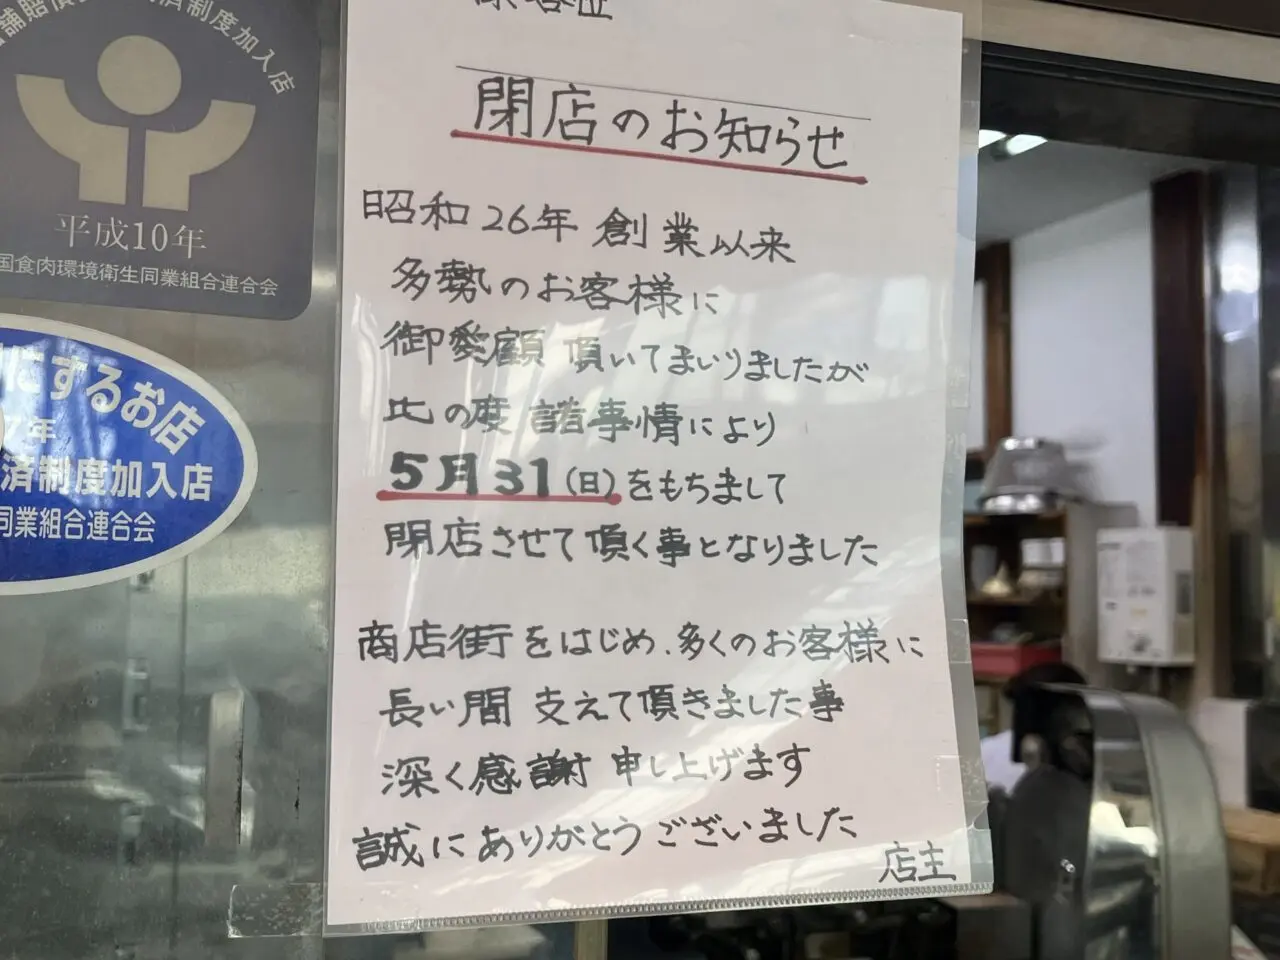 閉店のお知らせ
昭和26年 創業以来
多勢のお客様に
御愛顧 頂いてまいりましたが
比の度 諸事情により
5月31(日)をもちまして
閉店させて頂く事となりました
商店街をはじめ、多くのお客様に
長い間 支えて頂きました事
深く感謝 申し上げます
誠にありがとうございました
店主
舗賠償
済制度加入店
平成10年
国食肉環境衛生同業組合連合会
にするお店
年
済制度加入店
同業組合連合会